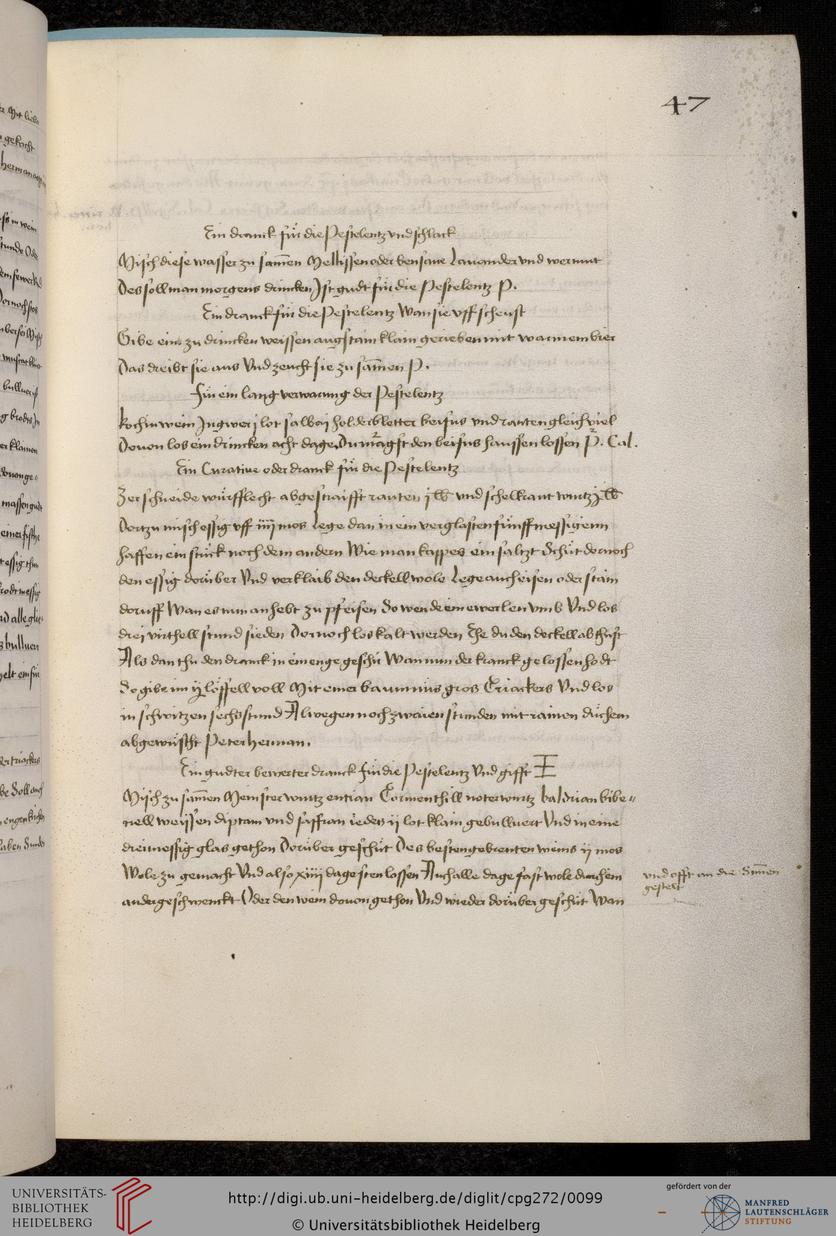 47
Ein dranck für die Pestelentz vnd schlack
Misch diese wasser zu samen Mellissen oder bensaue Lauander vnd wermut
Des soll man morgens drincken Ist gudt für die Pestelentz P.
Ein dranck für die Pestelentz Wan sie vff scheust
Gibe eim zu drincken weissen augstain klain gerieben mit warmem bier
Das dreibt sie aus Vnd zeucht sie zu samen P.
Für ein lang verwarung der Pestelentz
Koch in wein Ingwer j lot salbaj holderbletter beifus vnd rauten gleich viel
Douon los ein drincken acht dage Du magst den beifus haussen lossen P. Cal.
Ein Curatiue oder dranck für die Pestelentz
Zerschneide würfflecht abgestraifft rauten j lb vnd schelkraut wurtz j lb
Dortzu misch essig vff iiij mos Lege dan in ein verglasten fünff messigenn
haffen ein stück noch dem andern Wie man kappes ein saltzt Schüt dornoch
den essig dorüber Vnd verklaib den deckell wole Lege auch eisen oder stain
doruff Wan es nun anhebt zu pfeisen So wende im ewerlen vmb Vnd los
drei virthell stund sieden Dornoch los kalt werden Ehe du den deckell abthust
Als dan thu den dranck in ein enge geschir Wan nun der kranck gelossen hodt
So gibe im ij löffell voll Mit einer baumnus gros Triackers Vnd los
in schwitzen sechs stund Alwegen noch zwaien stunden mit rainen düchern
abgewüscht Peter herman.
Ein gudter bewerter dranck für die Pestelentz Vnd gifft
Misch zu samen Meinsterwurtz entian Tormenthill noterwurtz baldrian bibe=
nell weissen diptam vnd saffran ieden ij lot klain gebulluert Vnd in eine
dreimessig glas gethon Dorüber geschüt Des besten gebrenten weins ij mos
Wole zu gemacht Vnd also xiiij dage sten lossen Auch alle dage fast wole durchein
ander geschwenckt Oder den wein douon gethon Vnd wieder dorüber geschüt Wan
vnd offt an die Sunnen
gestelt
UNIVERSITÄTS-
BIBLIOTHEK
HEIDELBERG
http://digi.ub.uni-heidelberg.de/diglit/cpg272/0099
© Universitätsbibliothek Heidelberg
gefördert von der
MANFRED
LAUTENSCHLÄGER
STIFTUNG